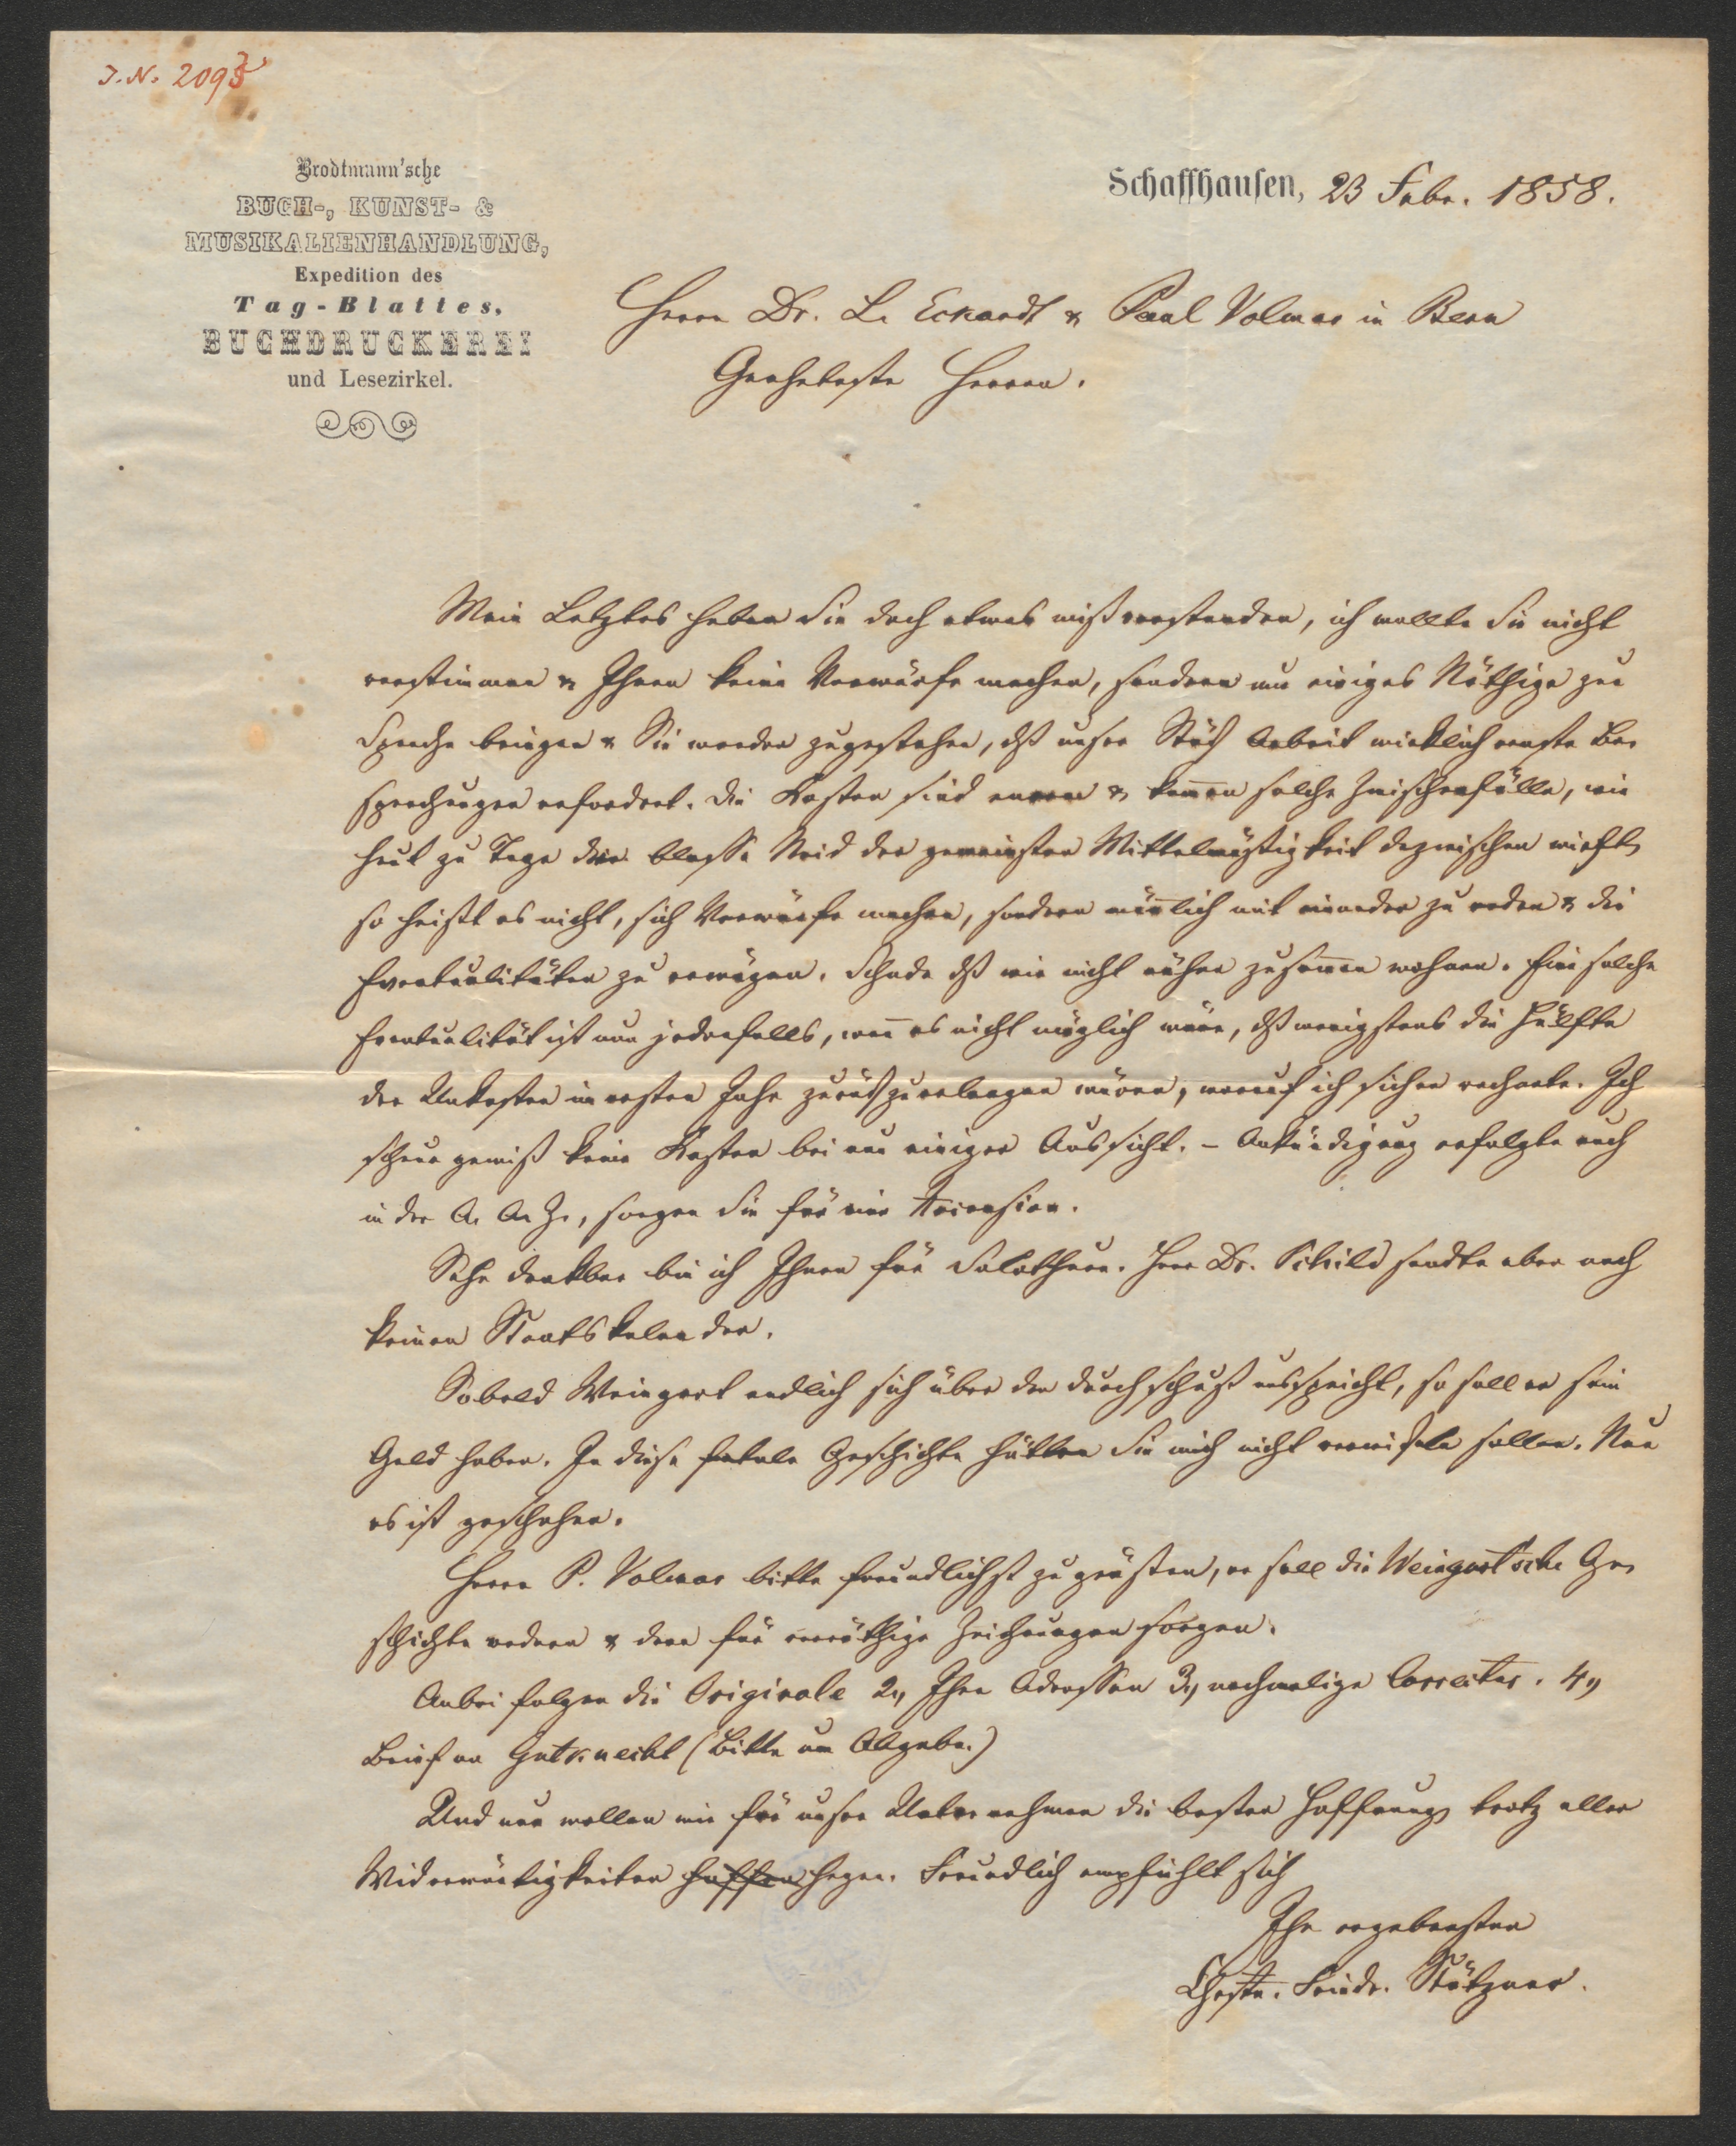 J. N. 2095
Brodtmann'sche
BUCH-, KUNST- &
MUSIKALIENHANDLUNG,
Expedition des
Tag-Blattes,
BUCHDRUCKEREI
und Lesezirkel.
Schaffhausen, 23 Febr. 1858.
Herrn Dr. L. Eckardt & Paul Volmar in Bern
Geehrteste Herren.
Mein Letztes haben Sie doch etwas mißverstanden, ich wollte Sie nicht
verstimmen & Ihnen keine Vorwürfe machen, sondern nur einiges Nöthige zur
Sprache bringen & Sie werden zugestehen, dß unsere Arbeit wirklich ernste Be-
sprechungen erfordert. Die Kosten sind enorm & kom̄en solche Zwischenfälle, wie
heut zu Tage der blasse Neid der gemeinsten Mittelmäßigkeit dazwischen wirft,
so heißt es nicht, sich Vorwürfe machen, sondern män̄lich mit einander zu reden & die
Eventualitäten zu erwägen. Schade dß wir nicht näher zusam̄en wohnen. Eine solche
Eventualität ist nun jedenfalls, wen̄ es nicht möglich wäre, dß wenigstens die Hälfte
der Unkosten im ersten Jahr zurückzuerlangen wären, worauf ich sicher rechnete. Ich
scheue gewiß keine Kosten bei nur einiger Aussicht. – Ankündigung erfolgte auch
in der A. A. Z., sorgen Sie für eine Recension.
Sehr dankbar bin ich Ihnen für Solothurn. Herr Dr. Schild sandte aber noch
keinen Staatskalender.
Sobald Weingart endlich sich über den Durchschuß ausspricht, so soll er sein
Geld haben. In diese fatale Geschichte hätten Sie mich nicht verwickeln sollen. Nun
es ist geschehen.
Herrn P. Volmar bitte freundlichst zu grüßen, er soll die Weingart'sche Ge-
schichte ordnen & dann für Zeichnungen sorgen.
Anbei folgen die Originale 2., Ihre Adressen 3., nochmalige Correctur. 4.,
Brief an Gutknecht (Bitte um Abgabe.)
Und nun wollen wir für unser Unternehmen die besten Hoffnung trotz aller
Widerwärtigkeiten hoffen hegen. Freundlich empfiehlt sich
Ihr ergebenster
Chrstn. Friedr. Stötzner.